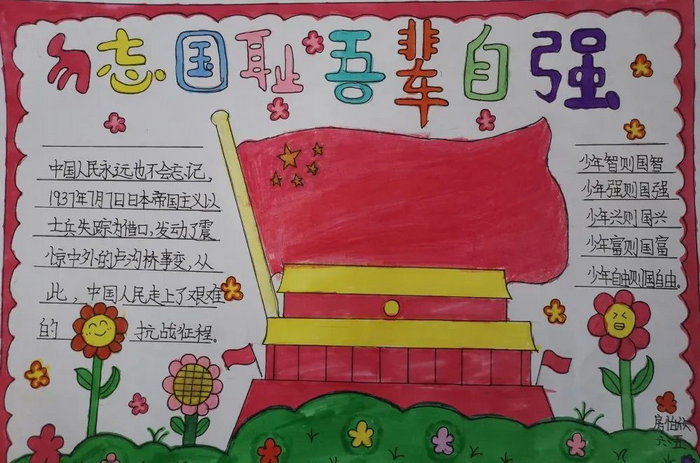 勿志国耻吾辈自强
中国人民永远也不会忘记,
1937年7月7日日本帝国主义以
士兵失踪为借口,发动了震
惊中外的卢沟桥事变,从
此,中国人民走上了艰难
的 抗战征程。
少年智则国智
少年强则国强
少年兴则国兴
少年富则国富
少年自由则国自由。
六·五